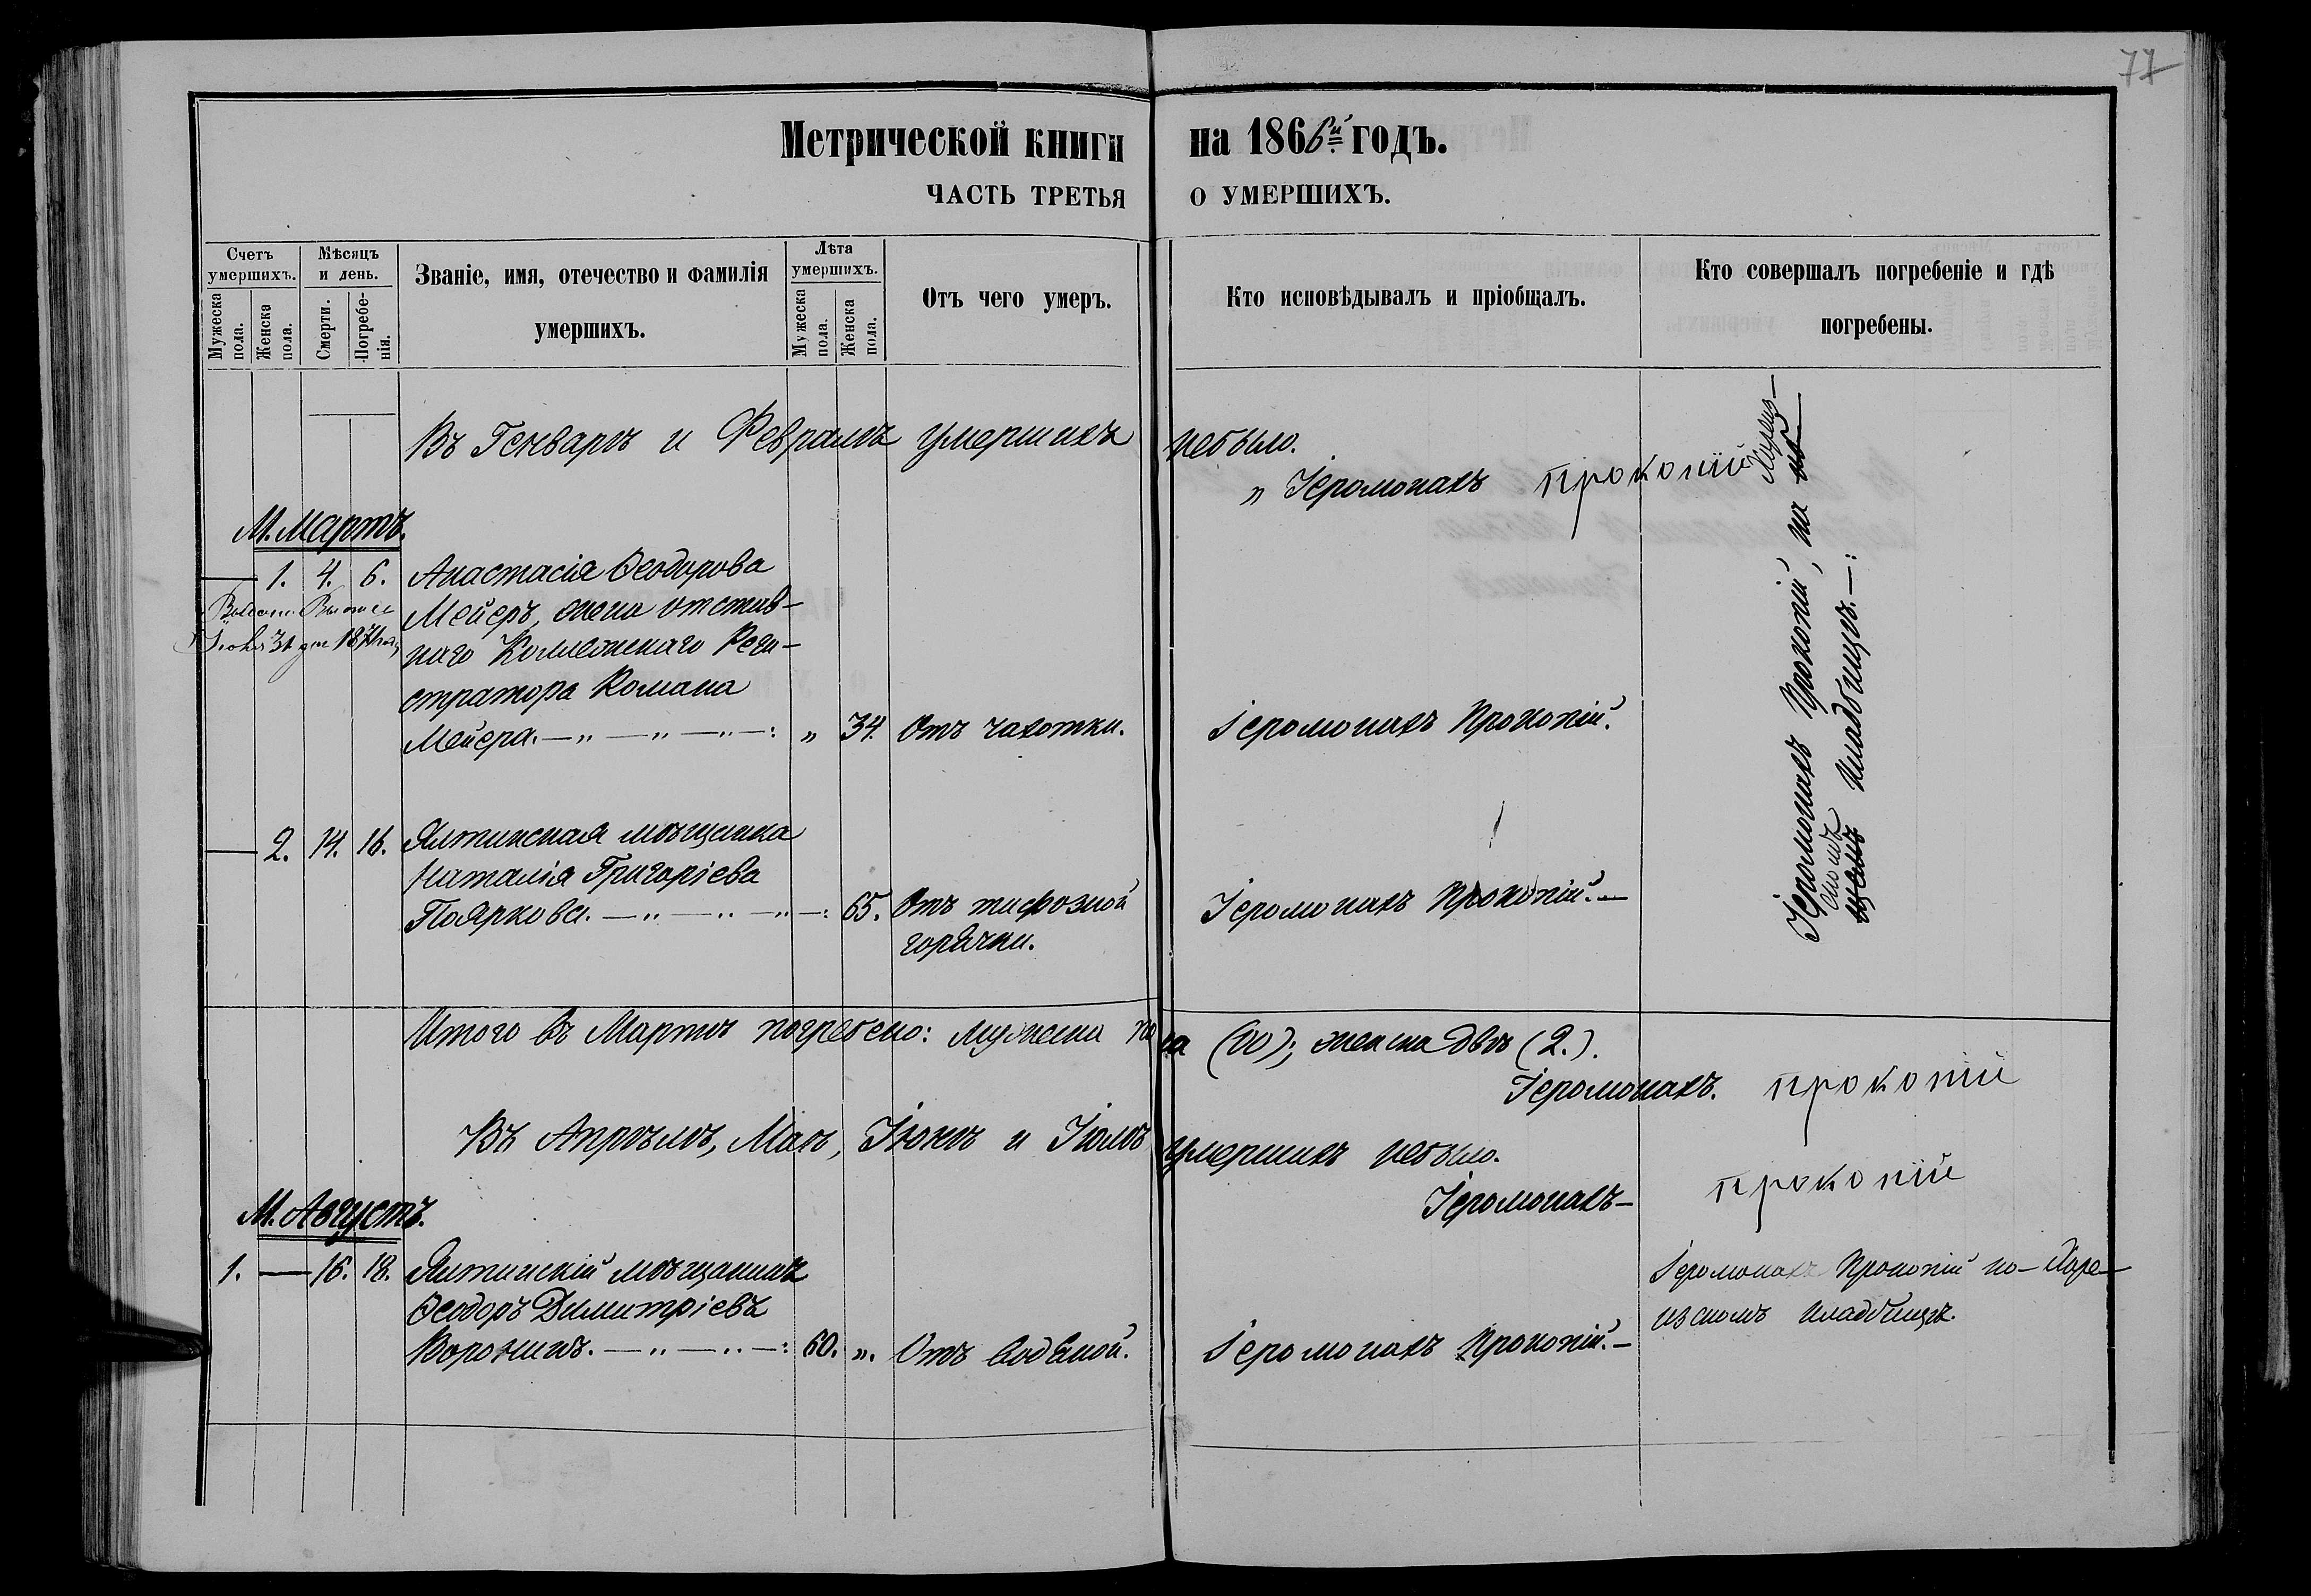 77
Метрической книги на 1866й годъ.
ЧАСТЬ ТРЕТЬЯ О УМЕРШИХЪ.
Счетъ умершихъ.
Мужеска пола.
Женска пола.
Мѣсяцъ и день.
Смерти.
Погребе-
нія.
Званіе, имя, отечество и фамилія
умершихъ.
Лѣта умершихъ.
Мужеска пола.
Женска пола.
Отъ чего умеръ.
Кто исповѣдывалъ и пріобщалъ.
Кто совершалъ погребеніе и гдѣ
погребены.
Въ Генварѣ и Февралѣ умершихъ небыло.
" Іеромонахъ Прокопій
М. Мартъ.
— 1. 4. 6. Анастасія Ѳеодорова
Мейеръ, жена отстав-
наго Коллежскаго Реги-
стратора Романа
Мейера. — " — " — " — : " 34. Отъ чахотки. Іеромонахъ Прокопій.
31 1871
— 2. 14. 16. Ялтинская мѣщанка
Наталія Григоріева
Пояркова. — " — " — " — : 65. Отъ тифозной Іеромонахъ Прокопій. —
горячки.
Іеромонахъ Прокопій, на
кладбищѣ. — :
Итого въ Мартѣ погребено: мужеска пола (00); женска двѣ (2.).
Іеромонахъ. Прокопій
Въ Апрѣлѣ, Маѣ, Іюнѣ и Іюлѣ умершихъ небыло.
Іеромонахъ — Прокопій
М. Августъ.
1. — 16. 18. Ялтинскій мѣщанинъ
Ѳеодоръ Димитріевъ
Воронинъ. — " — " — : 60. ". Отъ водяной. Іеромонахъ Прокопій. —
Іеромонахъ Прокопій
кладбищѣ.